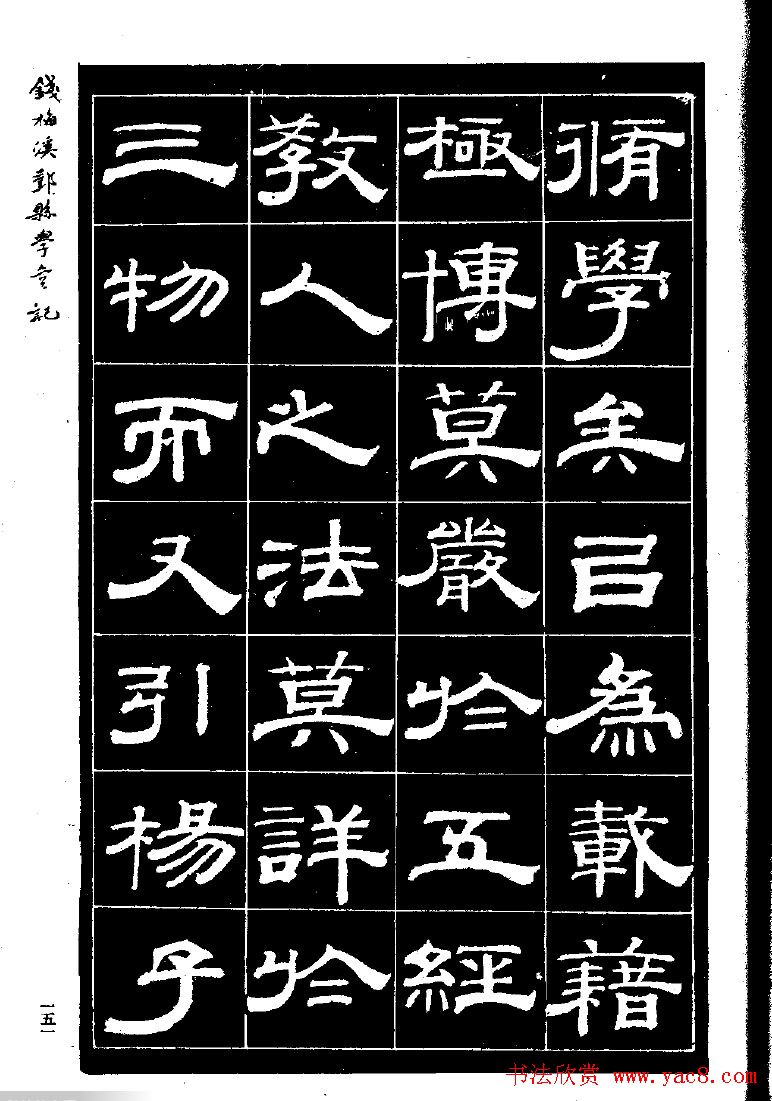 脩學矣㠯為載藉
極博莫嚴於五經
教人之法莫詳於
三物而又引楊子
錢梅溪縣學記
一五一
书法欣赏 www.yac8.com